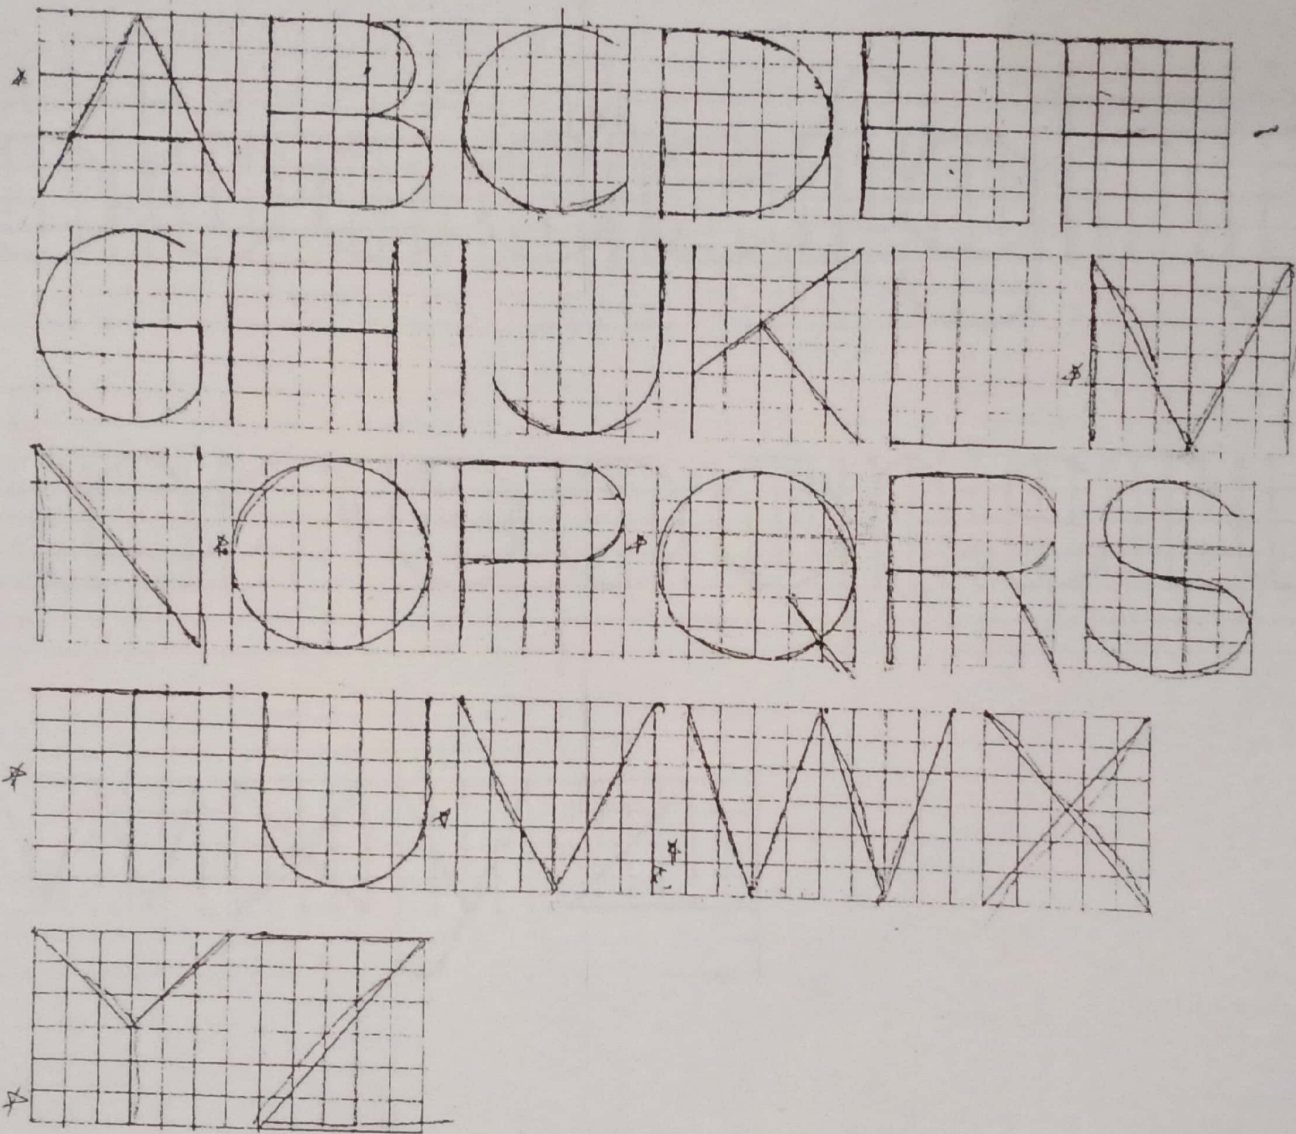 ABCDEF
GHIJKLM
NOPQRS
TUVWX
YZ